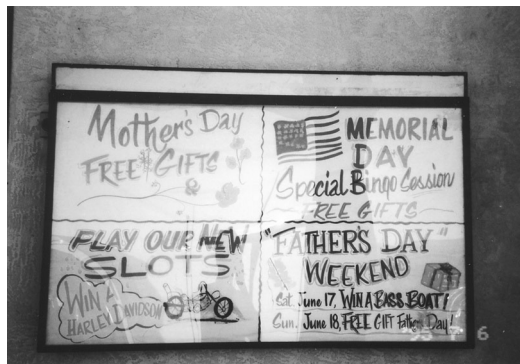 Mother's Day
FREE GIFTS
MEMORIAL
DAY
Special Bingo Session
FREE GIFTS
PLAY OUR NEW
SLOTS
WIN A
HARLEY DAVIDSON
"FATHER'S DAY"
WEEKEND
Sat. June 17, WIN A BASS BOAT!
Sun. June 18, FREE GIFT Fathers Day!